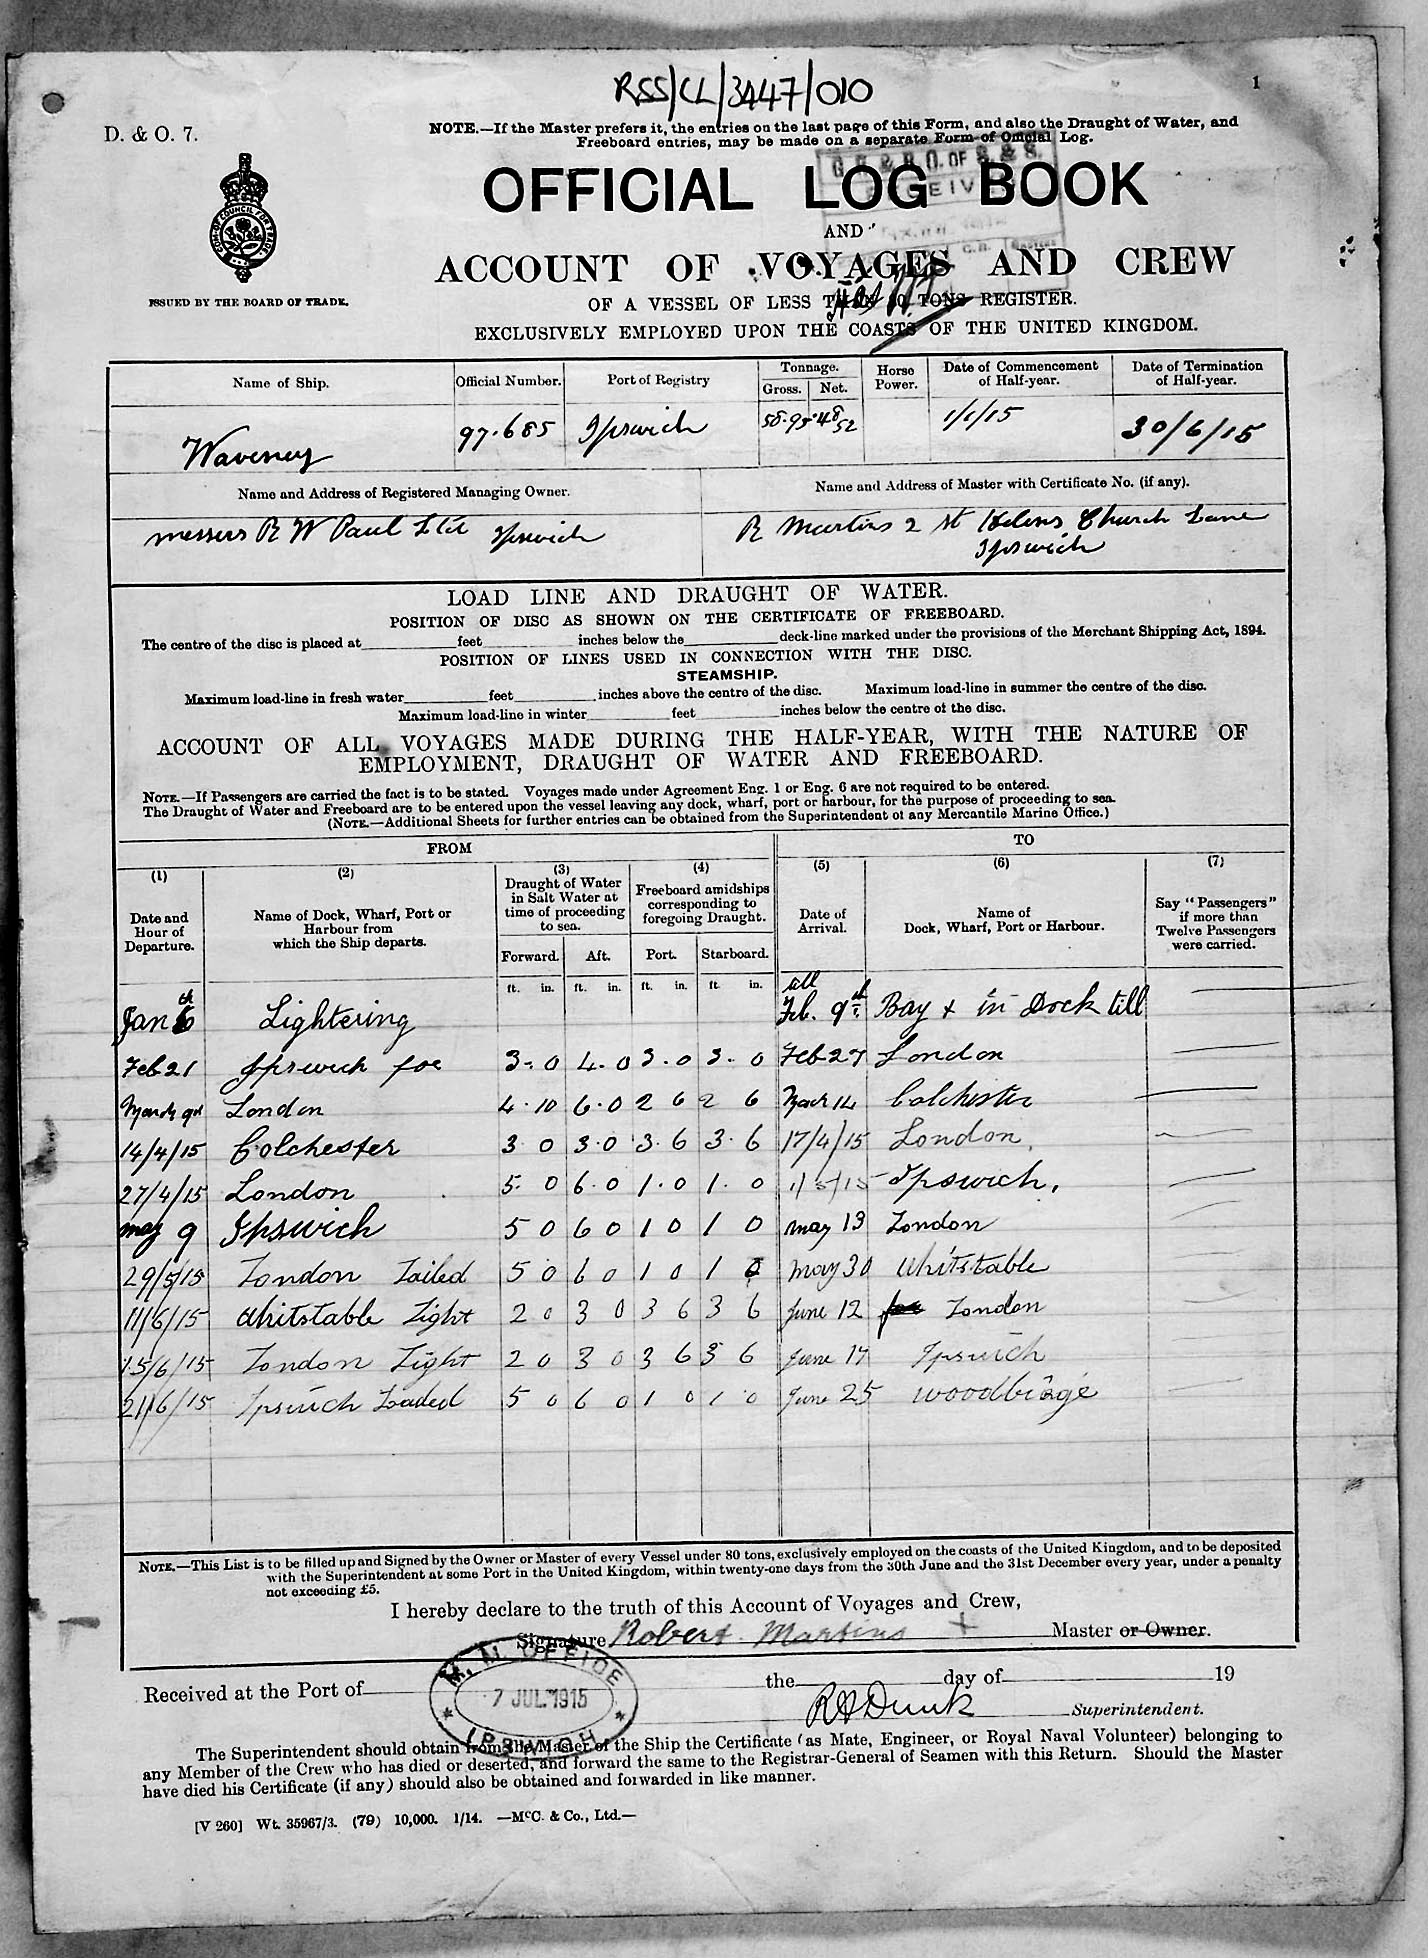 RSS/CL/3447/010
1
D. & O. 7.
NOTE.—If the Master prefers it, the entries on the last page of this Form, and also the Draught of Water, and
Freeboard entries, may be made on a separate Form of Official Log.
OFFICIAL LOG BOOK
AND
ACCOUNT OF VOYAGES AND CREW
ISSUED BY THE BOARD OF TRADE.
OF A VESSEL OF LESS THAN 80 TONS REGISTER.
EXCLUSIVELY EMPLOYED UPON THE COASTS OF THE UNITED KINGDOM.
Name of Ship. Official Number. Port of Registry Tonnage. Gross. Net. Horse Power. Date of Commencement of Half-year. Date of Termination of Half-year.
Waveney 97.685 Ipswich 58.95 48 52 1/1/15 30/6/15
Name and Address of Registered Managing Owner. Name and Address of Master with Certificate No. (if any).
messers R W Paul Ltd Ipswich R Martins 2 St Helens Church Lane
Ipswich
LOAD LINE AND DRAUGHT OF WATER.
POSITION OF DISC AS SHOWN ON THE CERTIFICATE OF FREEBOARD.
The centre of the disc is placed at feet inches below the deck-line marked under the provisions of the Merchant Shipping Act, 1894.
POSITION OF LINES USED IN CONNECTION WITH THE DISC.
STEAMSHIP.
Maximum load-line in fresh water feet inches above the centre of the disc. Maximum load-line in summer the centre of the disc.
Maximum load-line in winter feet inches below the centre of the disc.
ACCOUNT OF ALL VOYAGES MADE DURING THE HALF-YEAR, WITH THE NATURE OF
EMPLOYMENT, DRAUGHT OF WATER AND FREEBOARD.
NOTE.—If Passengers are carried the fact is to be stated. Voyages made under Agreement Eng. 1 or Eng. 6 are not required to be entered.
The Draught of Water and Freeboard are to be entered upon the vessel leaving any dock, wharf, port or harbour, for the purpose of proceeding to sea.
(NOTE.—Additional Sheets for further entries can be obtained from the Superintendent of any Mercantile Marine Office.)
FROM TO
(1) (2) (3) (4) (5) (6) (7)
Date and Hour of Departure. Name of Dock, Wharf, Port or Harbour from which the Ship departs. Draught of Water in Salt Water at time of proceeding to sea. Freeboard amidships corresponding to foregoing Draught. Date of Arrival. Name of Dock, Wharf, Port or Harbour. Say "Passengers" if more than Twelve Passengers were carried.
Forward. Aft. Port. Starboard.
ft. in. ft. in. ft. in. ft. in.
Jan 6th Lightering till Feb. 9th Bay + in Dock till
Feb 21 Ipswich for 3.0 4.0 3.0 3.0 Feb 27 London
March 9th London 4.10 6.0 2 6 2 6 March 14 Colchester
14/4/15 Colchester 3 0 3.0 3.6 3.6 17/4/15 London.
27/4/15 London 5.0 6.0 1.0 1.0 1/5/15 Ipswich.
may 9 Ipswich 5 0 6 0 1 0 1 0 may 13 London
29/5/15 London Lailed 5 0 6 0 1 0 1 0 may 30 Whitstable
11/6/15 Whitstable Light 2 0 3 0 3 6 3 6 June 12 for London
15/6/15 London Light 2 0 3 0 3 6 3 6 June 17 Ipswich
21/6/15 Ipswich Loaded 5 0 6 0 1 0 1 0 June 25 woodbridge
NOTE.—This List is to be filled up and Signed by the Owner or Master of every Vessel under 80 tons, exclusively employed on the coasts of the United Kingdom, and to be deposited
with the Superintendent at some Port in the United Kingdom, within twenty-one days from the 30th June and the 31st December every year, under a penalty
not exceeding £5.
I hereby declare to the truth of this Account of Voyages and Crew,
Signature Robert Martins + Master or Owner.
M. M. OFFICE
7 JUL 1915
IPSWICH
Received at the Port of the day of 19
Superintendent.
The Superintendent should obtain from the Master of the Ship the Certificate (as Mate, Engineer, or Royal Naval Volunteer) belonging to
any Member of the Crew who has died or deserted, and forward the same to the Registrar-General of Seamen with this Return. Should the Master
have died his Certificate (if any) should also be obtained and forwarded in like manner.
[V 260] Wt. 35967/3. (79) 10,000. 1/14. —McC. & Co., Ltd.—